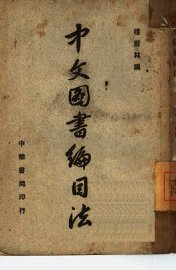 樓雲林編
中文圖書編目法
中華書局印行